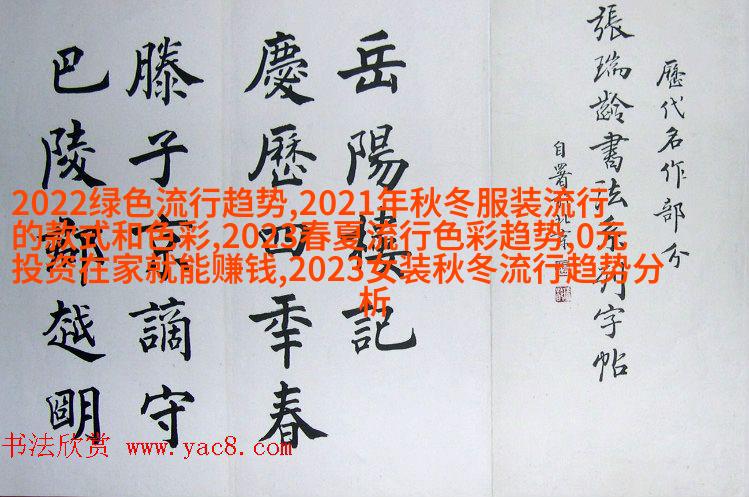 歷代名作部分
張瑞齡書法系列字帖
自署北京
岳陽樓記
慶歷四年春
滕子京謫守
巴陵郡越明
2022绿色流行趋势,2021年秋冬服装流行
的款式和色彩,2023春夏流行色彩趋势,0元
投资在家就能赚钱,2023女装秋冬流行趋势分
析
书法欣赏 www.yac8.com